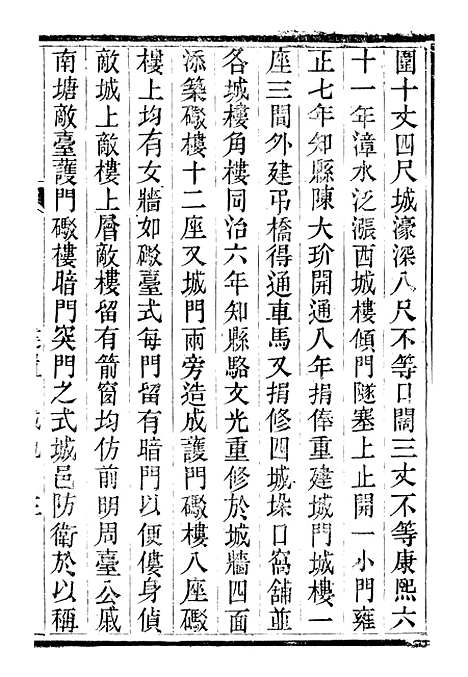 圍十丈四尺城濠深八尺不等口闊三丈不等康熙六
十一年漳水泛漲西城樓傾門隧塞上止開一小門雍
正七年知縣陳大玠開通八年捐俸重建城門城樓一
座三間外建弔橋得通車馬又捐修四城垛口窩舖並
各城樓角樓同治六年知縣駱文光重修於城牆四面
添築礮樓十二座又城門兩旁造成護門礮樓八座礮
樓上均有女牆如礮臺式每門留有暗門以便僂身偵
敵城上敵樓上層敵樓留有箭窗均仿前明周臺公戚
南塘敵臺護門礮樓暗門突門之式城邑防衛於以稱